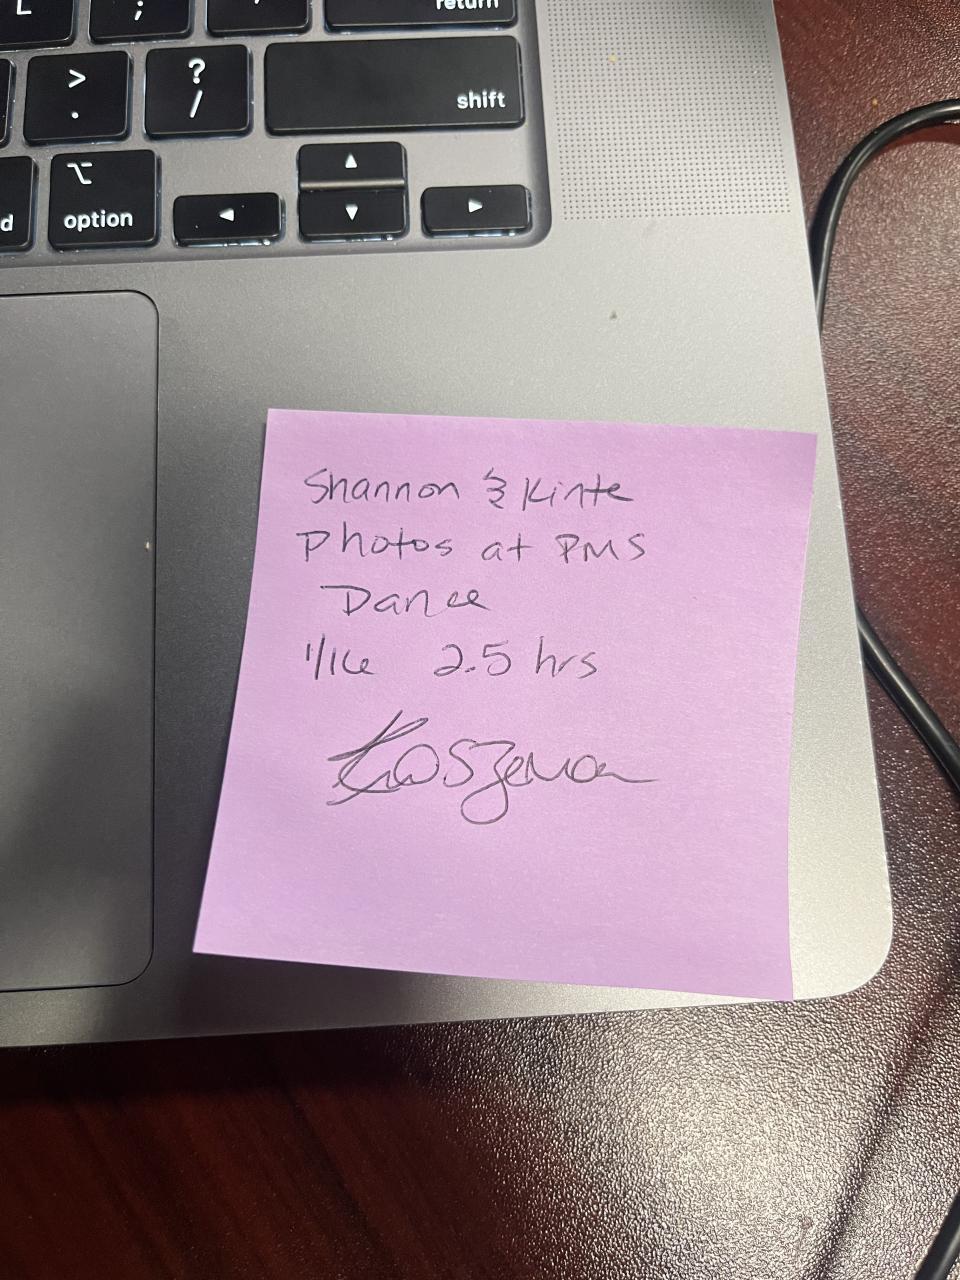 L
;
'
return
>
.
?
/
shift
d
option
Shannon & Kinte
Photos at PMS
Dance
1/16 2.5 hrs